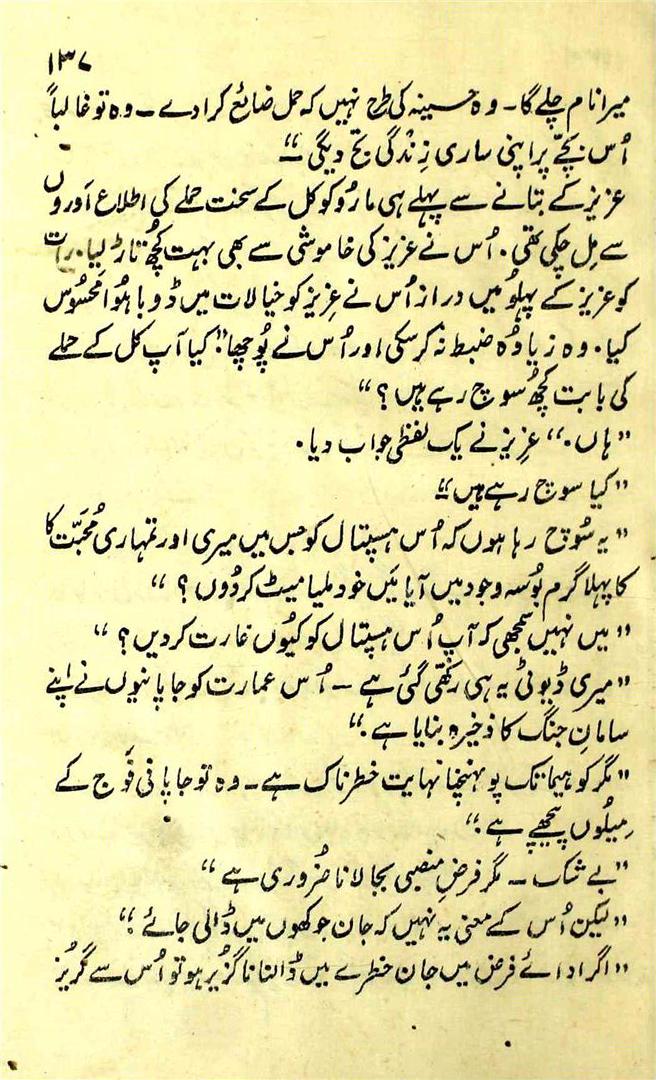 ۱۳۷
میرا نام چلے گا۔ وہ حسینہ کی طرح نہیں کہ حمل ضائع کرا دے۔ وہ تو غالباً
اُس بچّے پر اپنی ساری زندگی تج دیگی۔"
عزیز کے بتانے سے پہلے ہی مارُو کو کل کے سخت حملے کی اطلاع اَوروں
سے مِل چکی تھی۔ اُس نے عزیز کی خاموشی سے بھی بہت کچھ تاڑ لیا۔ رات
کو عزیز کے پہلُو میں دراز اُس نے عزیز کو خیالات میں ڈوبا ہُوا محسُوس
کیا۔ وہ زیادہ ضبط نہ کر سکی اور اُس نے پُوچھا "کیا آپ کل کے حملے
کی بابت کچھ سوچ رہے ہیں؟"
"ہاں۔" عزیز نے یک لفظی جواب دیا۔
"کیا سوچ رہے ہیں"
"یہ سُوچ رہا ہوں کہ اُس ہسپتال کو جس میں میری اور تمہاری مُحبّت کا
کا پہلا گرم بُوسہ وجود میں آیا مَیں خود ملیا میٹ کر دُوں؟"
"میں نہیں سمجھی کہ آپ اُس ہسپتال کو کیُوں غارت کر دیں؟"
"میری ڈیوٹی یہ ہی رکھی گئی ہے۔ اُس عمارت کو جاپانیوں نے اپنے
سامانِ جنگ کا ذخیرہ بنایا ہے۔"
"مگر کوہیما تک پوہنچنا نہایت خطرناک ہے۔ وہ تو جاپانی فَوج کے
مِیلُوں پیچھے ہے۔"
"بے شک۔ مگر فرضِ منصبی بجا لانا ضُروری ہے"
"لیکن اُس کے معنی یہ نہیں کہ جان جوکھوں میں ڈالی جائے۔"
"اگر ادائے فرض میں جان خطرے میں ڈالنا ناگزُیر ہو تو اُس سے گُریز